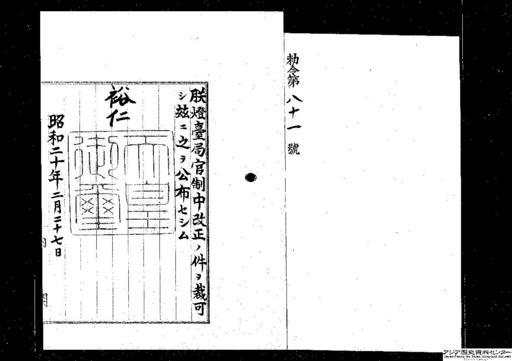 勅令第八十一號
朕燈臺局官制中改正ノ件ヲ裁可
シ玆ニ之ヲ公布セシム
裕仁
天皇
御璽
昭和二十年二月二十七日
アジア歴史資料センター
Japan Center for Asian Historical Records